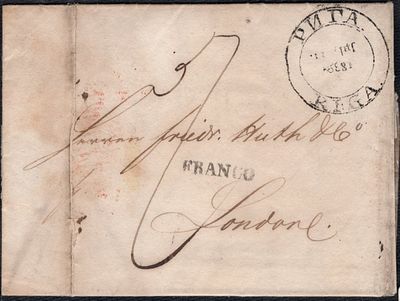 РИГА
RIGA
Herren Friedr. Huth & Co
FRANCO
London.